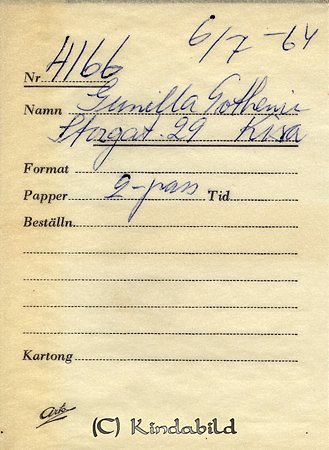 6/7-64
Nr 4166
Namn Gunilla Gothenie
Storgat. 29 Kisa
Format
Papper 2-pass Tid
Beställn.
Kartong
Ark
(C) Kindabild